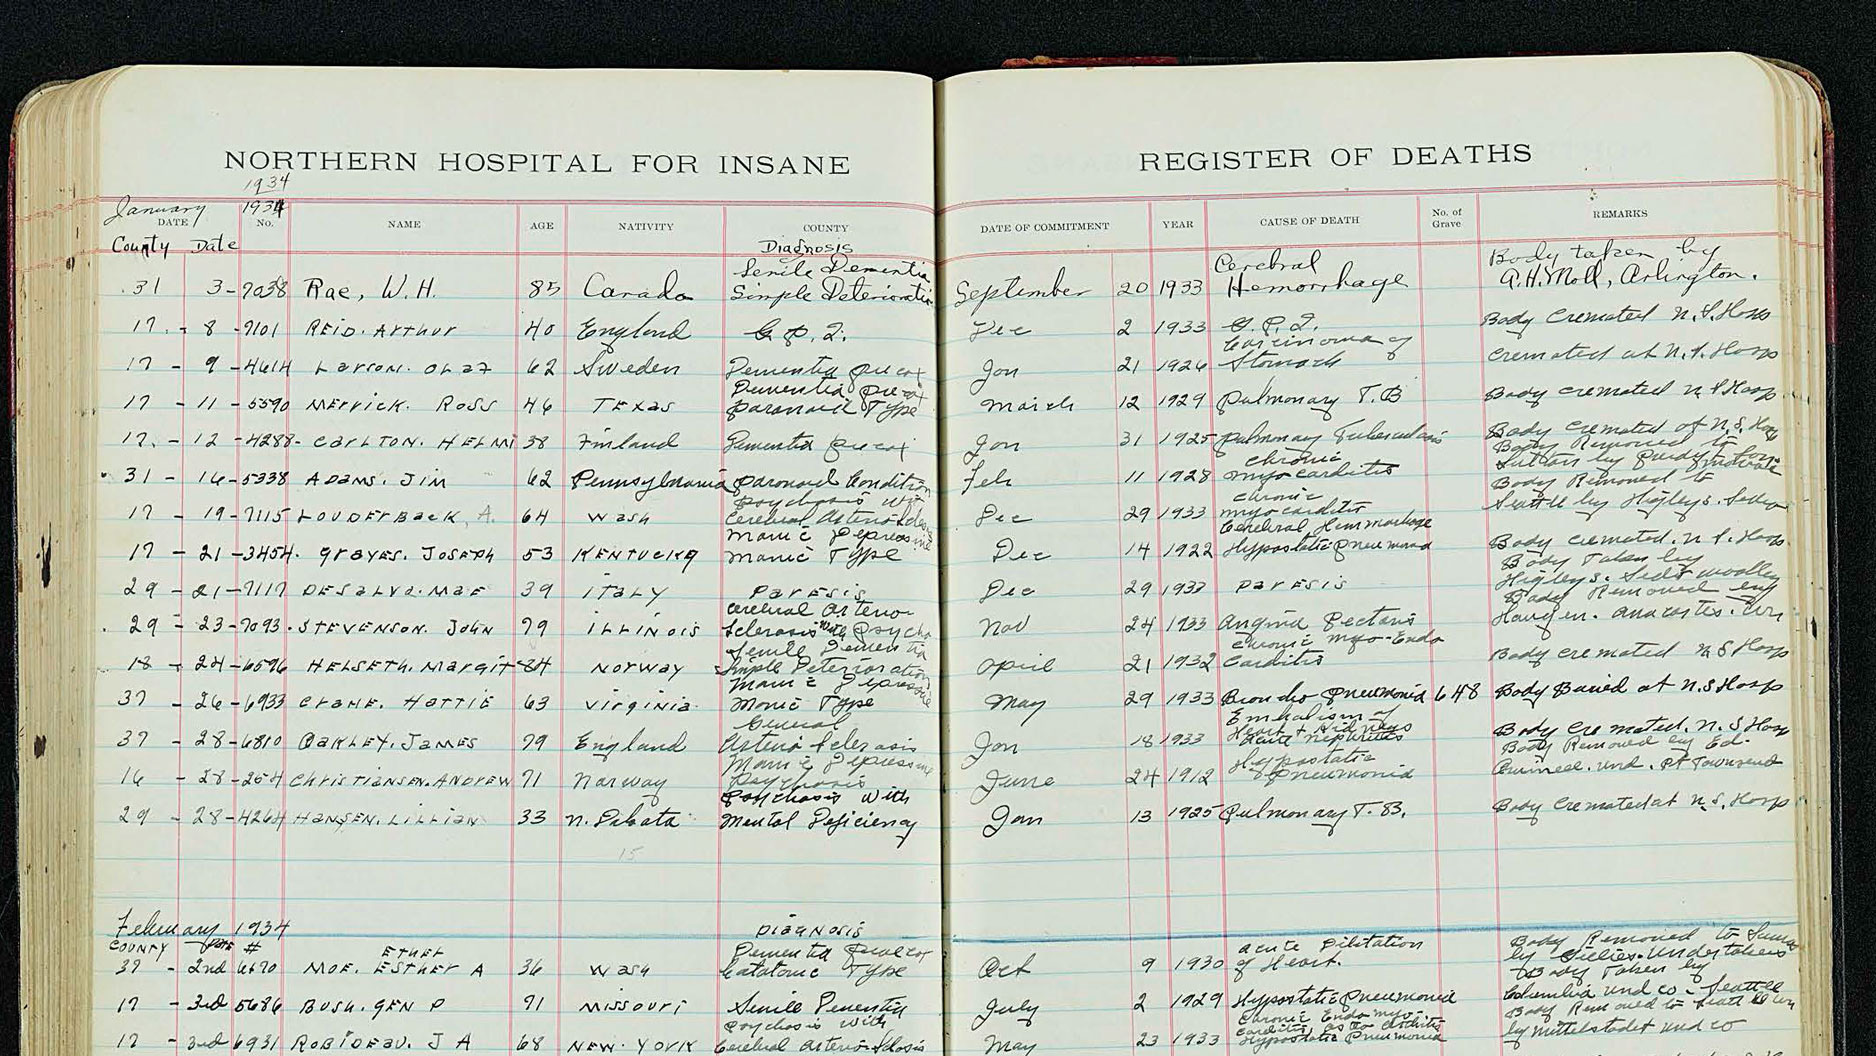 NORTHERN HOSPITAL FOR INSANE
REGISTER OF DEATHS
1934
January 1934
DATE No. NAME AGE NATIVITY COUNTY DATE OF COMMITMENT YEAR CAUSE OF DEATH No. of Grave REMARKS
County Date Diagnosis
Senile Dementia Cerebral Body taken by
31 3-7038 Rae, W.H. 85 Canada Simple Deterioration September 20 1933 Hemorrhage Arlington.
17 - 8 -7101 REID. Arthur 40 England G.P.I. Dec 2 1933 G.P.I. Body Cremated N.S. Hosp
Carcinoma of
17 - 9 -4614 Larson. Olaf 62 Sweden Dementia Precox Jan 21 1926 Stomach Cremated at N.S. Hosp
Dementia Precox
17 - 11 - 5590 Merrick. Ross 46 Texas Paranoid Type March 12 1929 Pulmonary T.B Body Cremated N.S Hosp
17. - 12 -4288- Carlton. HELMI 38 Finland Dementia Precox Jan 31 1925 Pulmonary Tuberculosis Body Cremated at N.S. Hosp
Chronic Body Removed to
31 - 16-5338 ADAMS. JIM 62 Pennsylvania Paranoid Condition Feb 11 1928 Myocarditis
Psychosis with Chronic Body Removed to
17 - 19-7115 LOUDERBACK, A. 64 Wash Cerebral Arterio Dec 29 1933 Myocarditis Seattle by Higleys.
Manic Depressive Cerebral Hemmorhage
17 - 21 -3454. Graves. Joseph 53 KENTUCKY Manic Type Dec 14 1922 Hypostatic Pneumonia Body Cremated. N.S. Hosp.
Body Taken by
29 - 21-7117 DESALVO. MAE 39 ITALY PARESIS Dec 29 1933 PARESIS Higleys. Sedro Woolley
Cerebral Arterio Body Removed by
29 - 23-7093. STEVENSON. John 79 ILLINOIS Sclerosis with Psycho Nov 24 1933 Angina Pectoris Anacortes. Wn
Senile Dementia Chronic Myo-Endo
18 - 24-6596 HELSETH. Margit 84 NORWAY Simple Deterioration April 21 1932 Carditis Body Cremated N S Hosp
Manic Depressive
37 - 26-6933 CRANE. HATTIE 63 Virginia Manic Type May 29 1933 Broncho Pneumonia 648 Body Buried at N.S Hosp
General Embolism of
Heart & Kidneys
37 - 28-6810 OAKLEY. JAMES 79 England Arterio Sclerosis Jan 18 1933 Acute Nephritis Body Cremated. N.S Hosp
Manic Depressive Hypostatic Body Removed by Ed.
16 - 28-254 CHRISTIANSEN. ANDREW 71 Norway Psychosis June 24 1912 Pneumonia Und. Pt Townsend
Psychosis with
29 - 28-4264 HANSEN. LILLIAN 33 N. Dakota Mental Deficiency Jan 13 1925 Pulmonary T.B. Body Cremated at N.S. Hosp
15
February 1934 DIAGNOSIS
COUNTY Date # ETHEL Dementia Praecox Acute Dilitation Body Removed to
37 - 2nd 6670 MOE. ESTHER A 36 Wash Catatonic Type Oct 9 1930 of Heart. by Undertakers
Body Taken by
17 - 3rd 5686 BUSH. GEN P 71 MISSOURI Senile Dementia July 2 1929 Hypostatic Pneumonia Columbia Und Co - Seattle
Psychosis with Chronic Endo Myo- Body Removed to Seattle Wn
17 - 3rd 6931 ROBIDEAU. J A 68 NEW-YORK Cerebral Arterio Sclerosis May 23 1933 Hypostatic Pneumonia by Mittelstadt Und Co